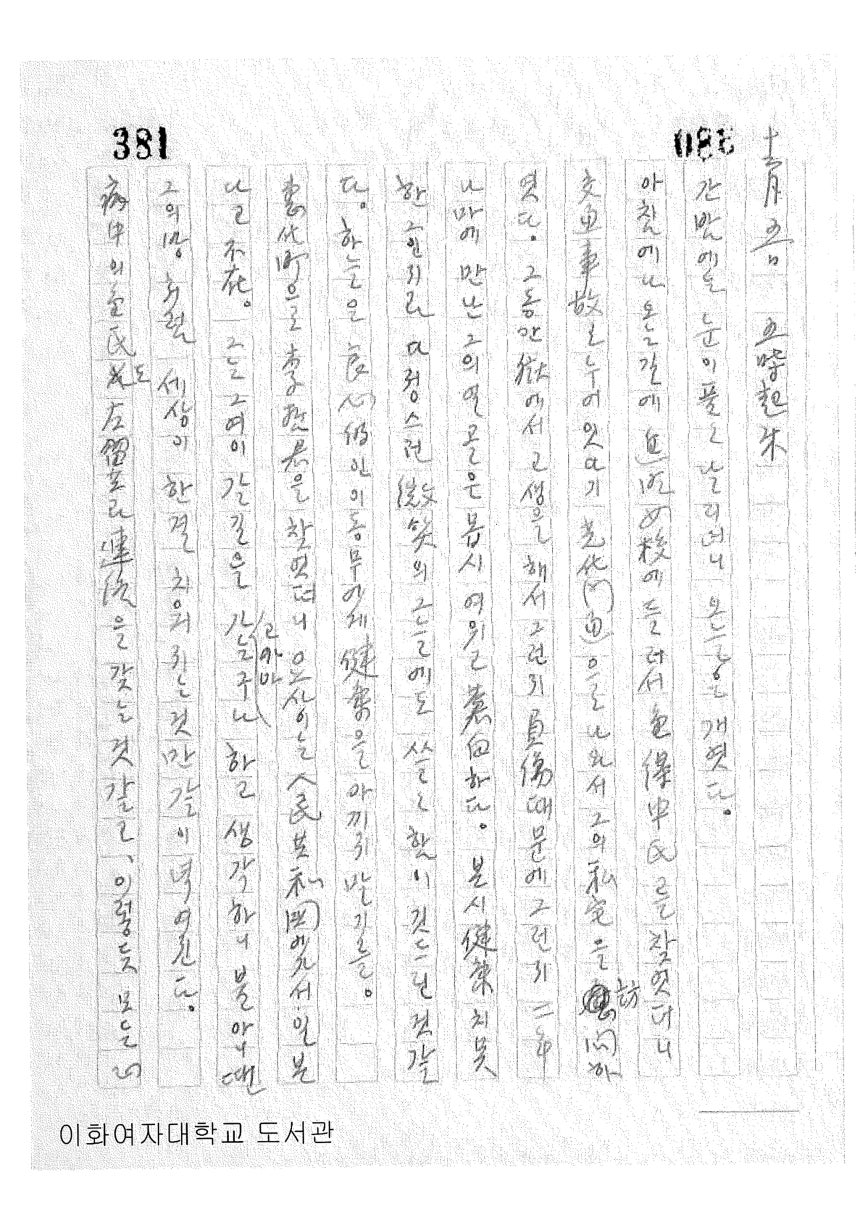 381
380
十二月 五日 五時起床
간밤에는 눈이 풀풀 날리더니 오늘은 개엿다.
아침에 나오는 길에 進明女校에 들러서 金得中氏를 찾엇더니
交通事故로 누어잇다기 光化門通으로 나와서 그의 私宅을 訪問하
엿다. 그동안 獄에서 고생을 해서 그런지 負傷때문에 그런지 二年
나마에 만난 그의 얼골은 몹시 여위고 蒼白하다. 본시 健康치못
한 그인지라 다정스런 微笑의 그늘에도 쓸쓸함이 깃드린 것 같
다. 하늘은 良心的인 이 동무에게 健康을 아끼지 말기를.
惠化町으로 李 君을 찾엇더니 으상이는 人民共和國에 가서 일본
다고 不在. 그는 그여이 갈 길을 가는구나 하고 생각하니 불 아니 땐
고 까마
그의 방처럼 세상이 한결 치워지는 것만 같이 녁여진다.
病中의 金氏도 左翼과 連絡을 갖는 것 같고, 이렇듯 모든
이화여자대학교 도서관